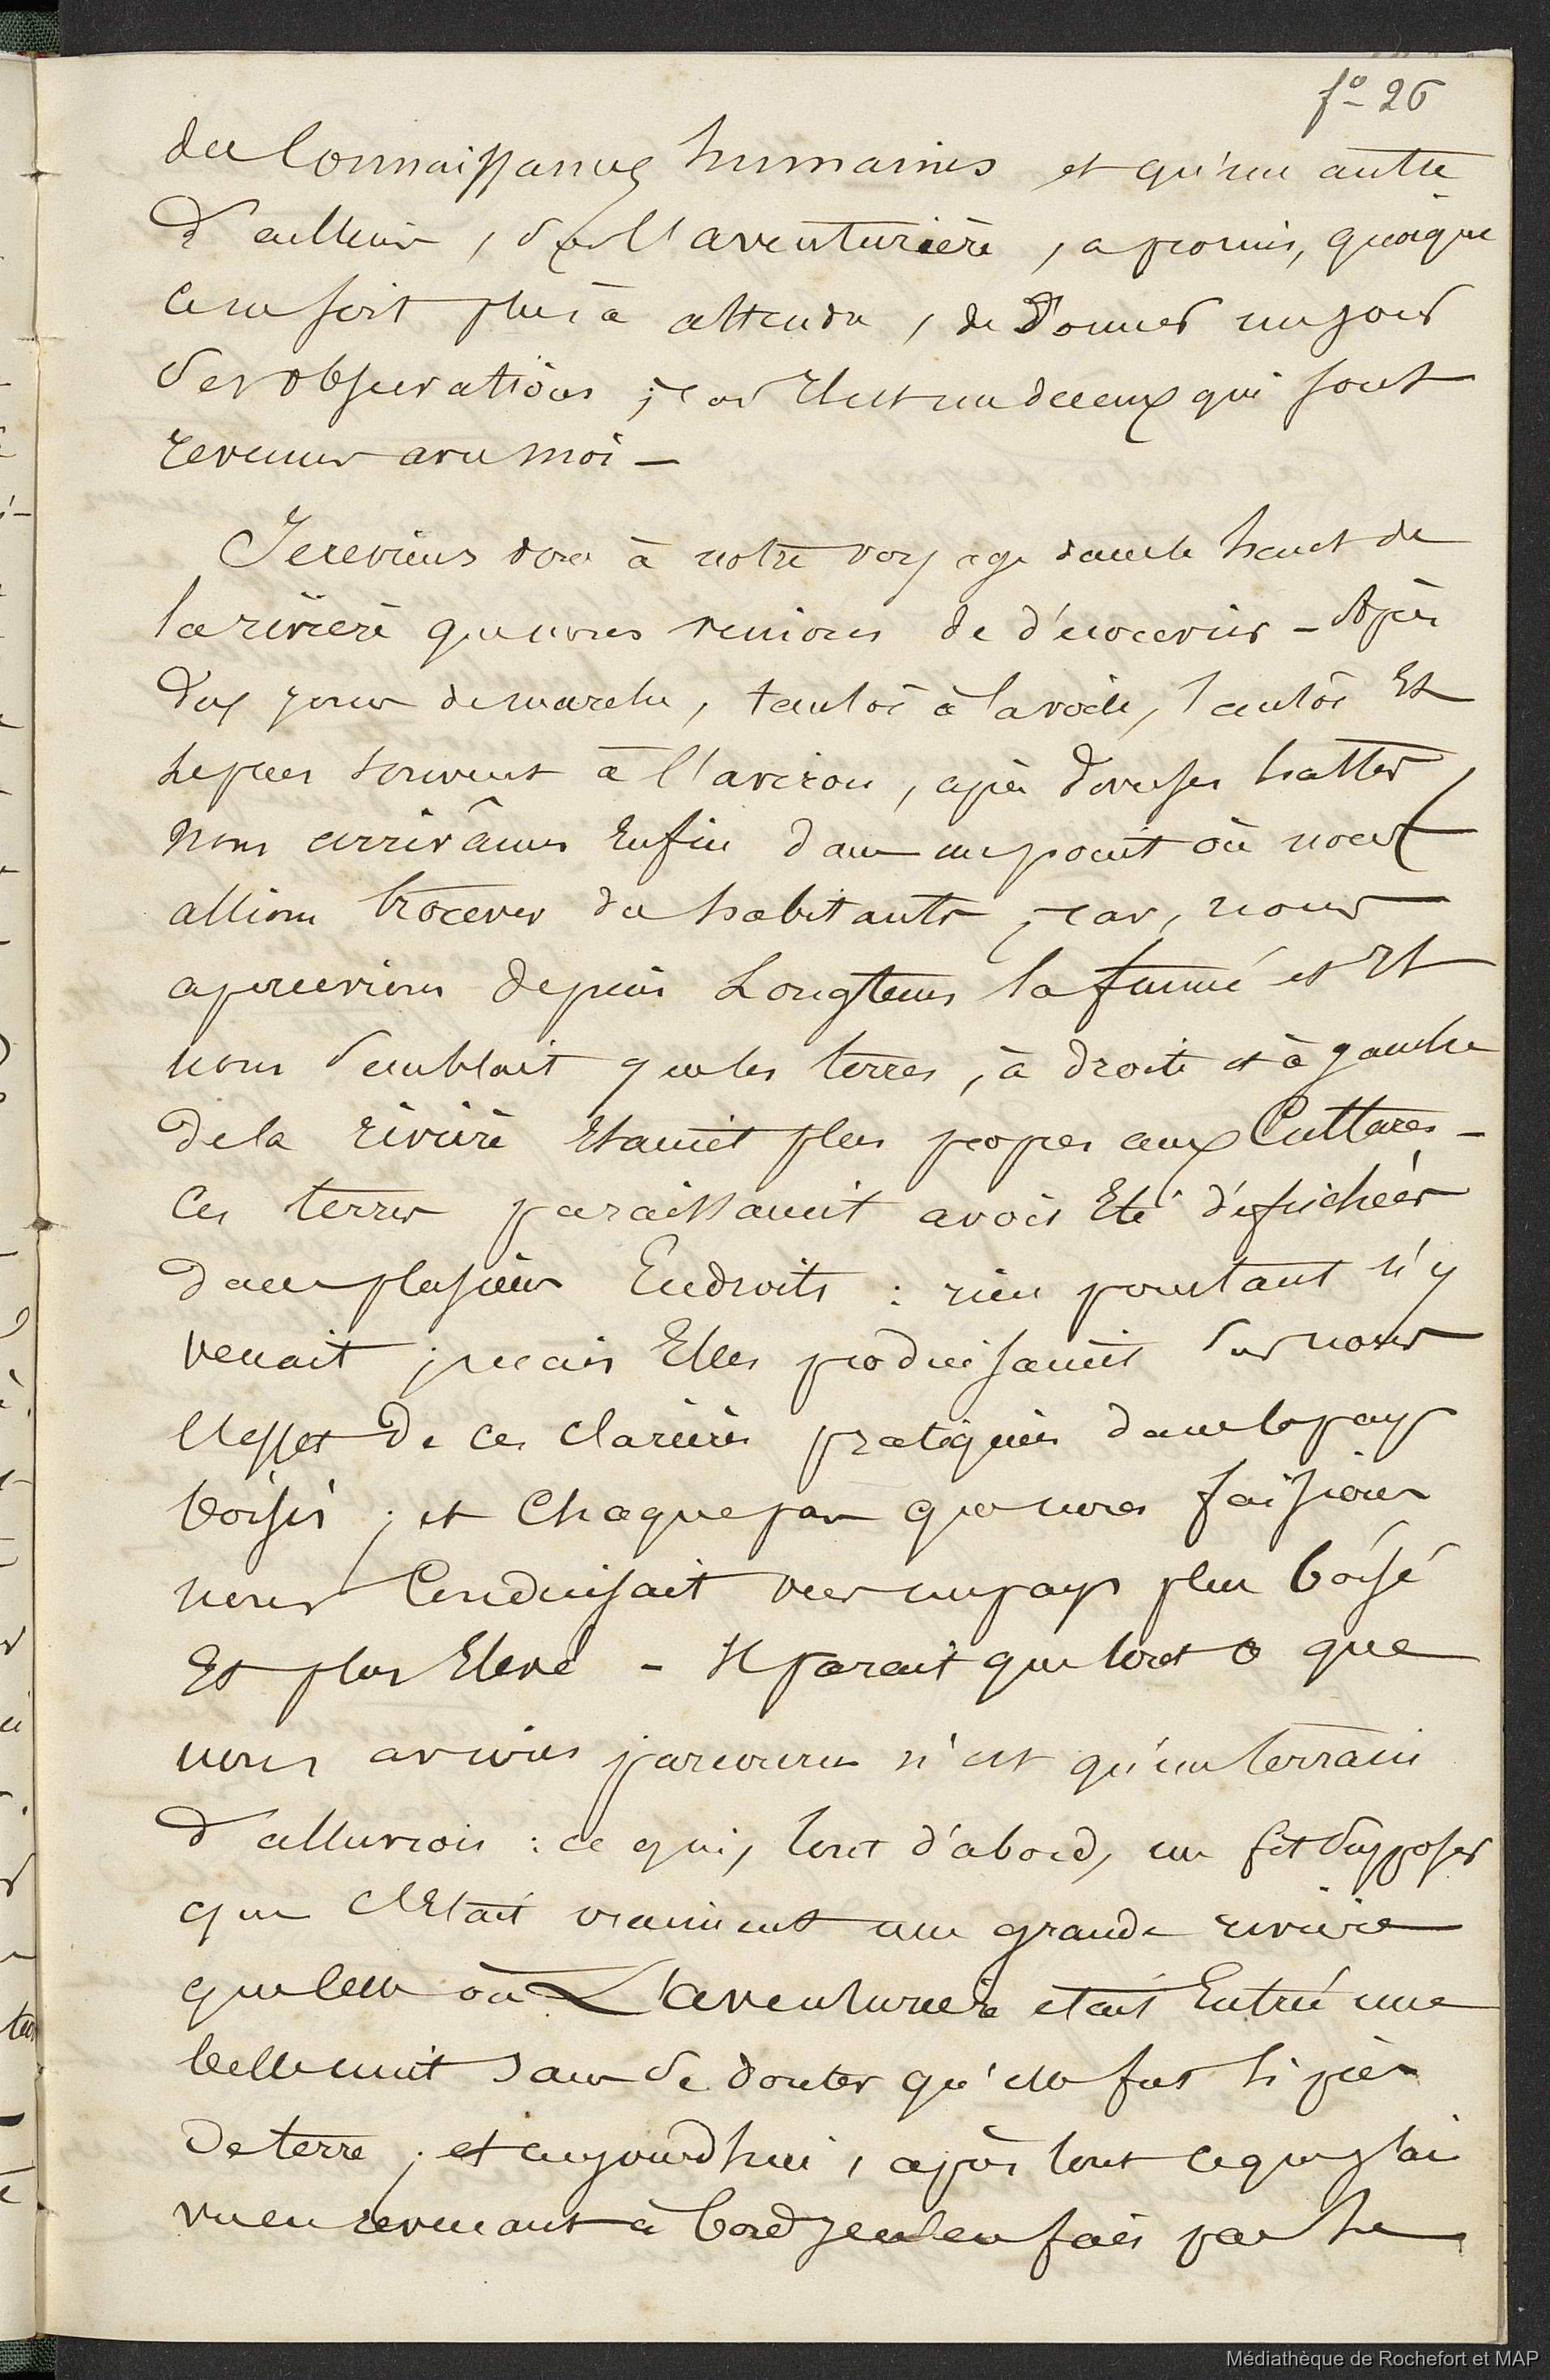 fo 26
des Connaissances humaines et qu'un autre
d'ailleurs, sur l'aventurière, a promis, quoique
ce ne soit plus à attendre, de donner un jour
ses observations ; car Il est un de ceux qui sont
revenus avec moi —
Je reviens donc à notre voyage dans le haut de
la rivière que nous venions de découvrir — Après
dix jours de marche, tantôt à la voile, tantôt Et
le plus souvent à l'aviron, après diverses haltes
nous arrivâmes Enfin dans un point où nous
allions trouver des habitants ; car, nous
apercevions depuis Longtems la fumée et Il
nous semblait que les terres, à droite et à gauche
de la rivière Etaient plus propres aux Cultures —
Ces terres paraissaient avoir Eté défrichées
dans plusieurs Endroits : rien pourtant n'y
venait ; mais Elles produisaient sur nous
l'effet de ces clarières pratiquées dans les pays
boisés ; et Chaque pas que nous faisions
nous Conduisait vers un pays plus boisé
Et plus Elevé — Il parait que tout ce que
nous avions parcouru n'est qu'un terrain
d'alluvion : ce qui, tout d'abord, me fit supposer
que c'Etait vraiment une grande rivière
que celle où L'aventurière etait Entrée une
belle nuit sans se douter qu'elle fut si près
de terre ; et aujourd'hui, après tout ce que j'ai
vu en revenant à bord je n'en fais pas le
Médiathèque de Rochefort et MAP